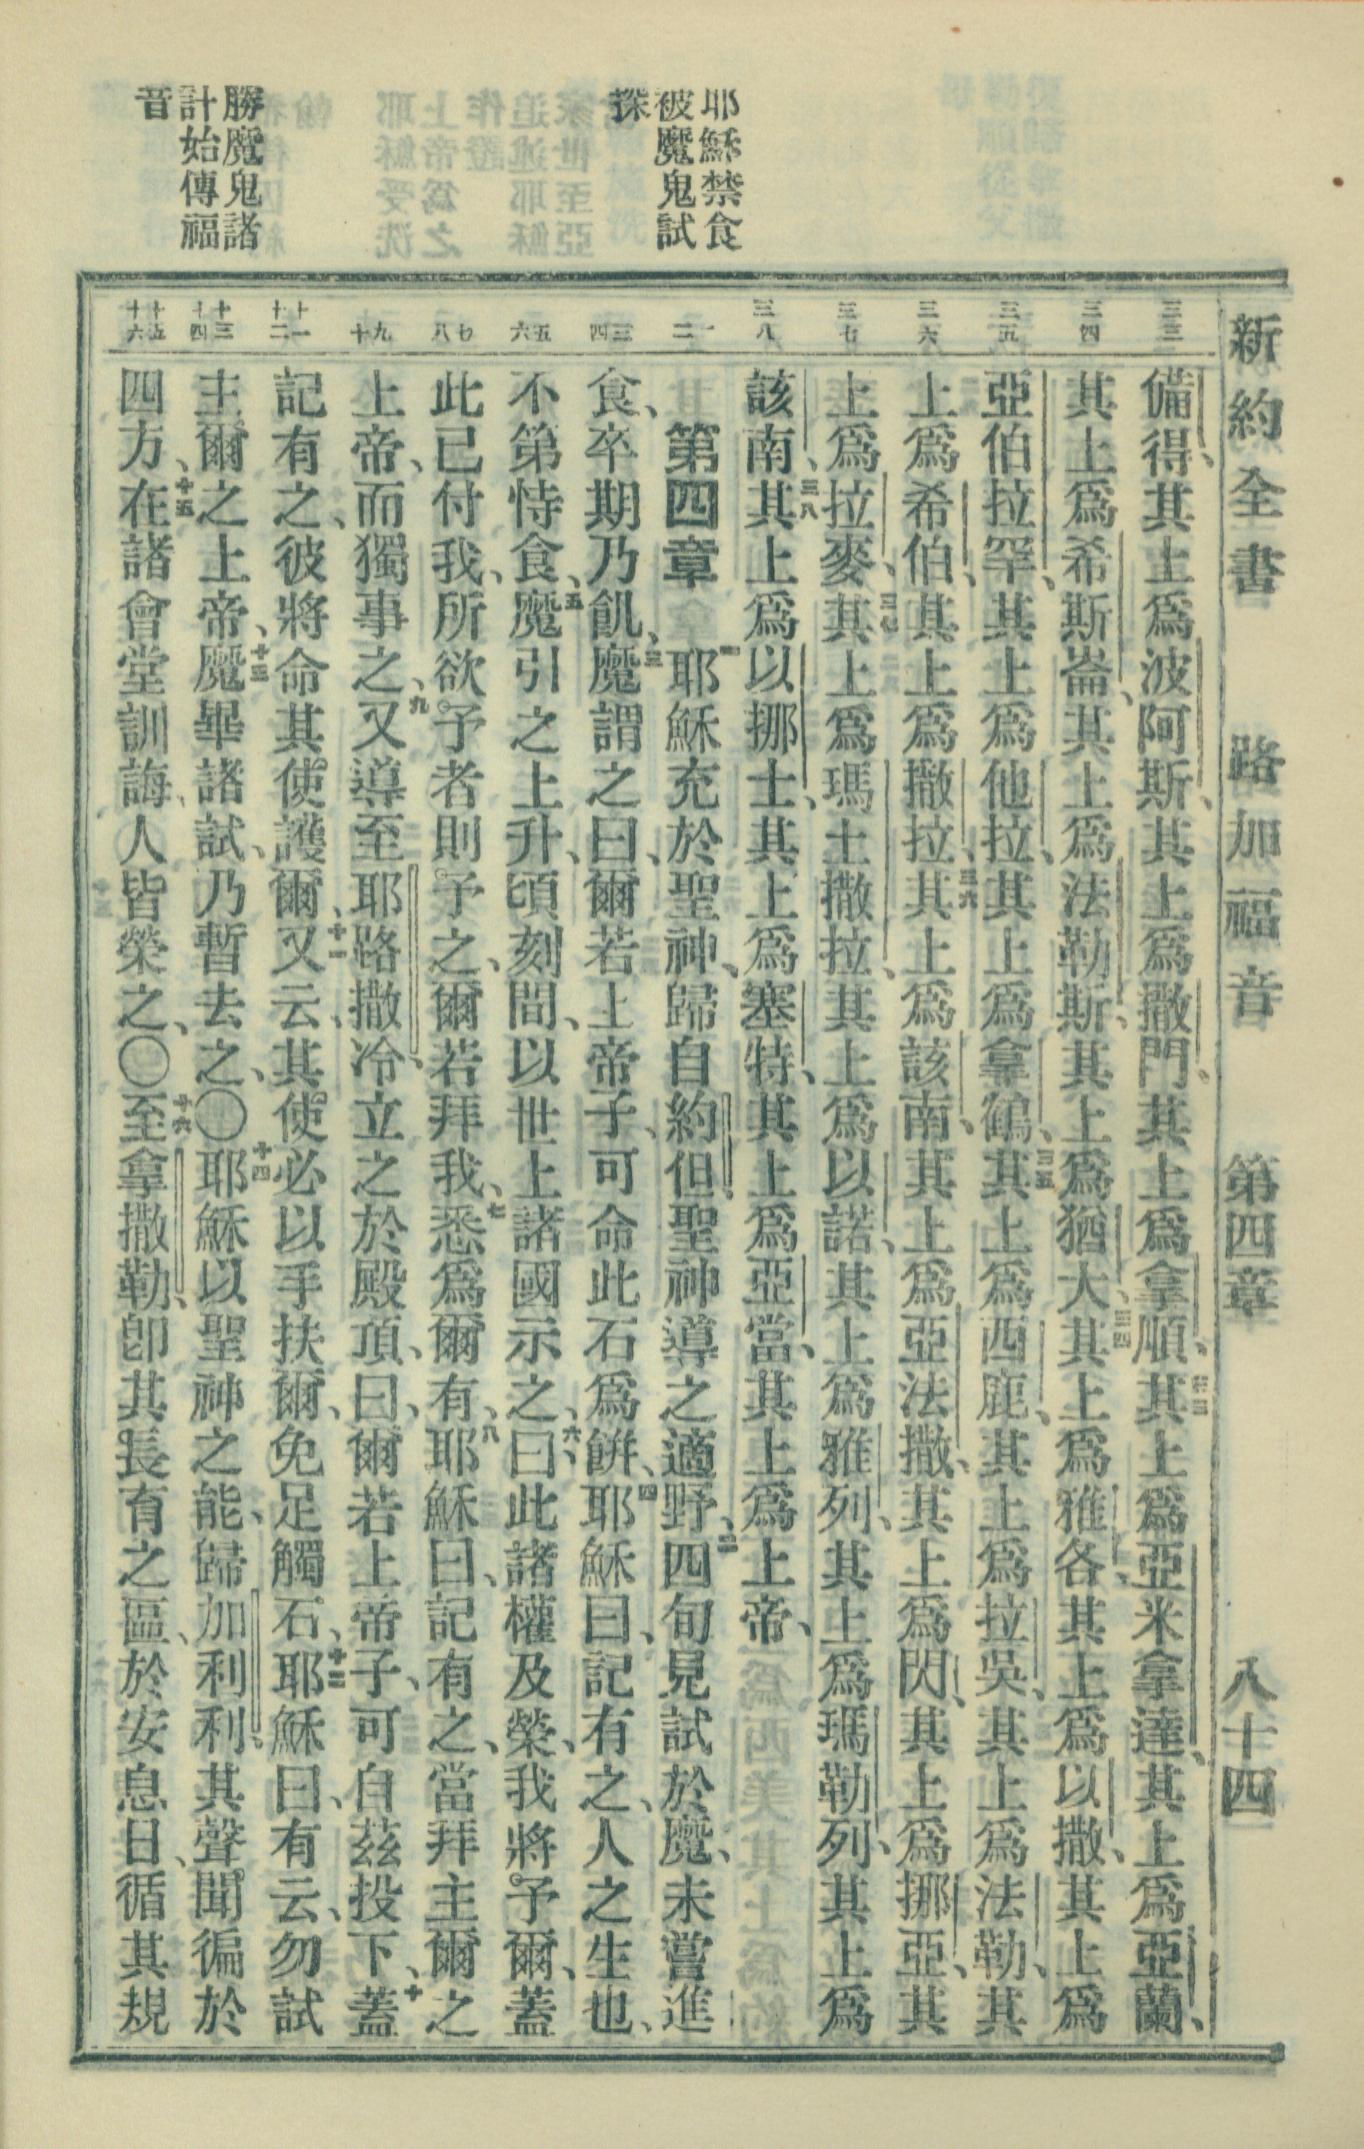 新約全書 路加福音 第四章 八十四
耶穌禁食
被魔鬼試
探
勝魔鬼諸
計始傳福
音
三三
三四
三五
三六
三七
三八
一 二
三 四
五 六
七 八
九 十
十一 十二
十三 十四
十五 十六
備得、其上爲波阿斯、其上爲撒門、其上爲拿順、三三其上爲亞米拿達、其上爲亞蘭、
其上爲希斯崙、其上爲法勒斯、其上爲猶大、三四其上爲雅各、其上爲以撒、其上爲
亞伯拉罕、其上爲他拉、其上爲拿鶴、三五其上爲西鹿、其上爲拉吳、其上爲法勒、其
上爲希伯、其上爲撒拉、三六其上爲該南、其上爲亞法撒、其上爲閃、其上爲挪亞、其
上爲拉麥、三七其上爲瑪土撒拉、其上爲以諾、其上爲雅列、其上爲瑪勒列、其上爲
該南、三八其上爲以挪士、其上爲塞特、其上爲亞當、其上爲上帝、
第四章 一耶穌充於聖神、歸自約但、聖神導之適野、二四旬見試於魔、未嘗進
食、卒期乃飢、三魔謂之曰、爾若上帝子、可命此石爲餅、四耶穌曰、記有之、人之生也、
不第恃食、五魔引之上升、頃刻間、以世上諸國示之、六曰、此諸權及榮、我將予爾、蓋
此已付我、所欲予者則予之、爾若拜我、七悉爲爾有、八耶穌曰、記有之、當拜主爾之
上帝、而獨事之、九又導至耶路撒冷、立之於殿頂、曰、爾若上帝子、可自茲投下、十蓋
記有之、彼將命其使護爾、十一又云、其使必以手扶爾、免足觸石、十二耶穌曰、有云、勿試
主爾之上帝、十三魔畢諸試、乃暫去之、〇十四耶穌以聖神之能、歸加利利、其聲聞徧於
四方、十五在諸會堂訓誨、人皆榮之、〇十六至拿撒勒、卽其長有之區、於安息日、循其規